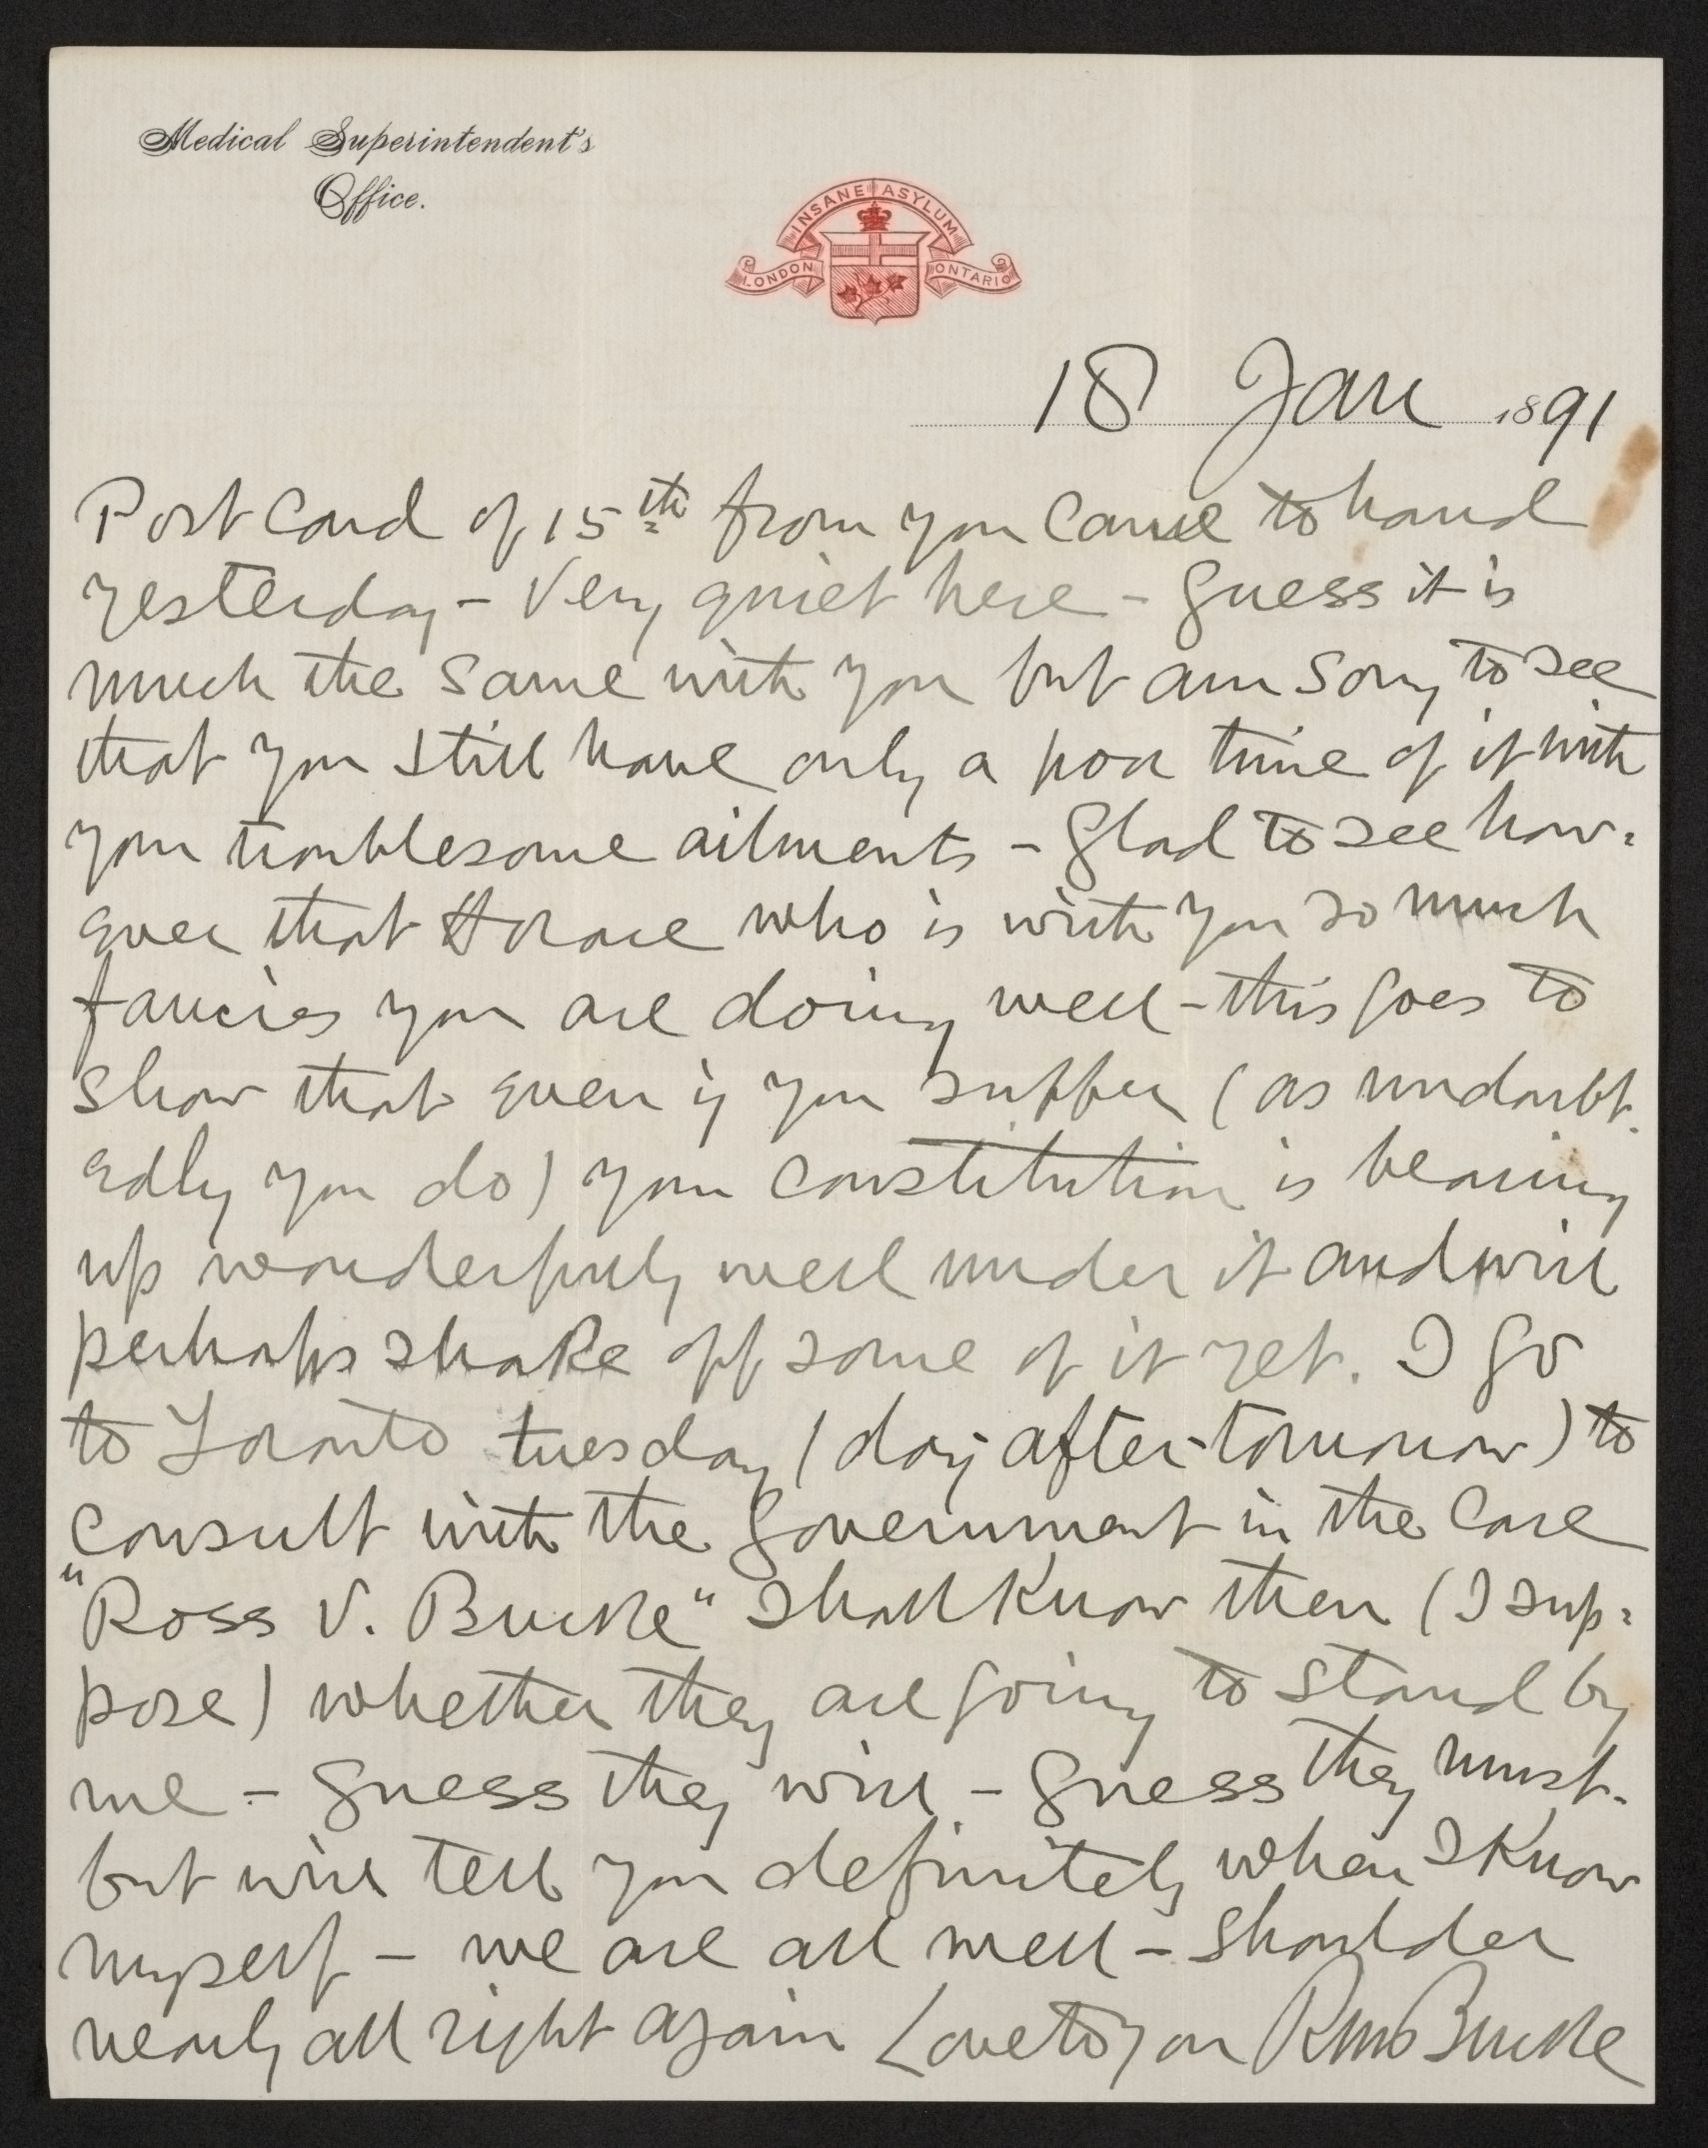 Medical Superintendent's
Office.
INSANE ASYLUM
LONDON ONTARIO
18 Jan 1891
Post Card of 15th from you came to hand
yesterday – Very quiet here – guess it is
much the same with you but am sorry to see
that you still have only a poor time of it with
your troublesome ailments – glad to see how=
ever that Horace who is with you so much
fancies you are doing well – this goes to
show that even if you suffer (as undoubt-
edly you do) your constitution is bearing
up wonderfully well under it and will
perhaps shake off some of it yet. I go
to Toronto tuesday (day-after-tomorrow) to
consult with the government in the case
"Ross V. Bucke" shall know then (I sup=
pose) whether they are going to stand by
me – guess they will – guess they must-
but will tell you definitely when I know
myself – we are all well – shoulder
nearly all right again Love to you RM Bucke